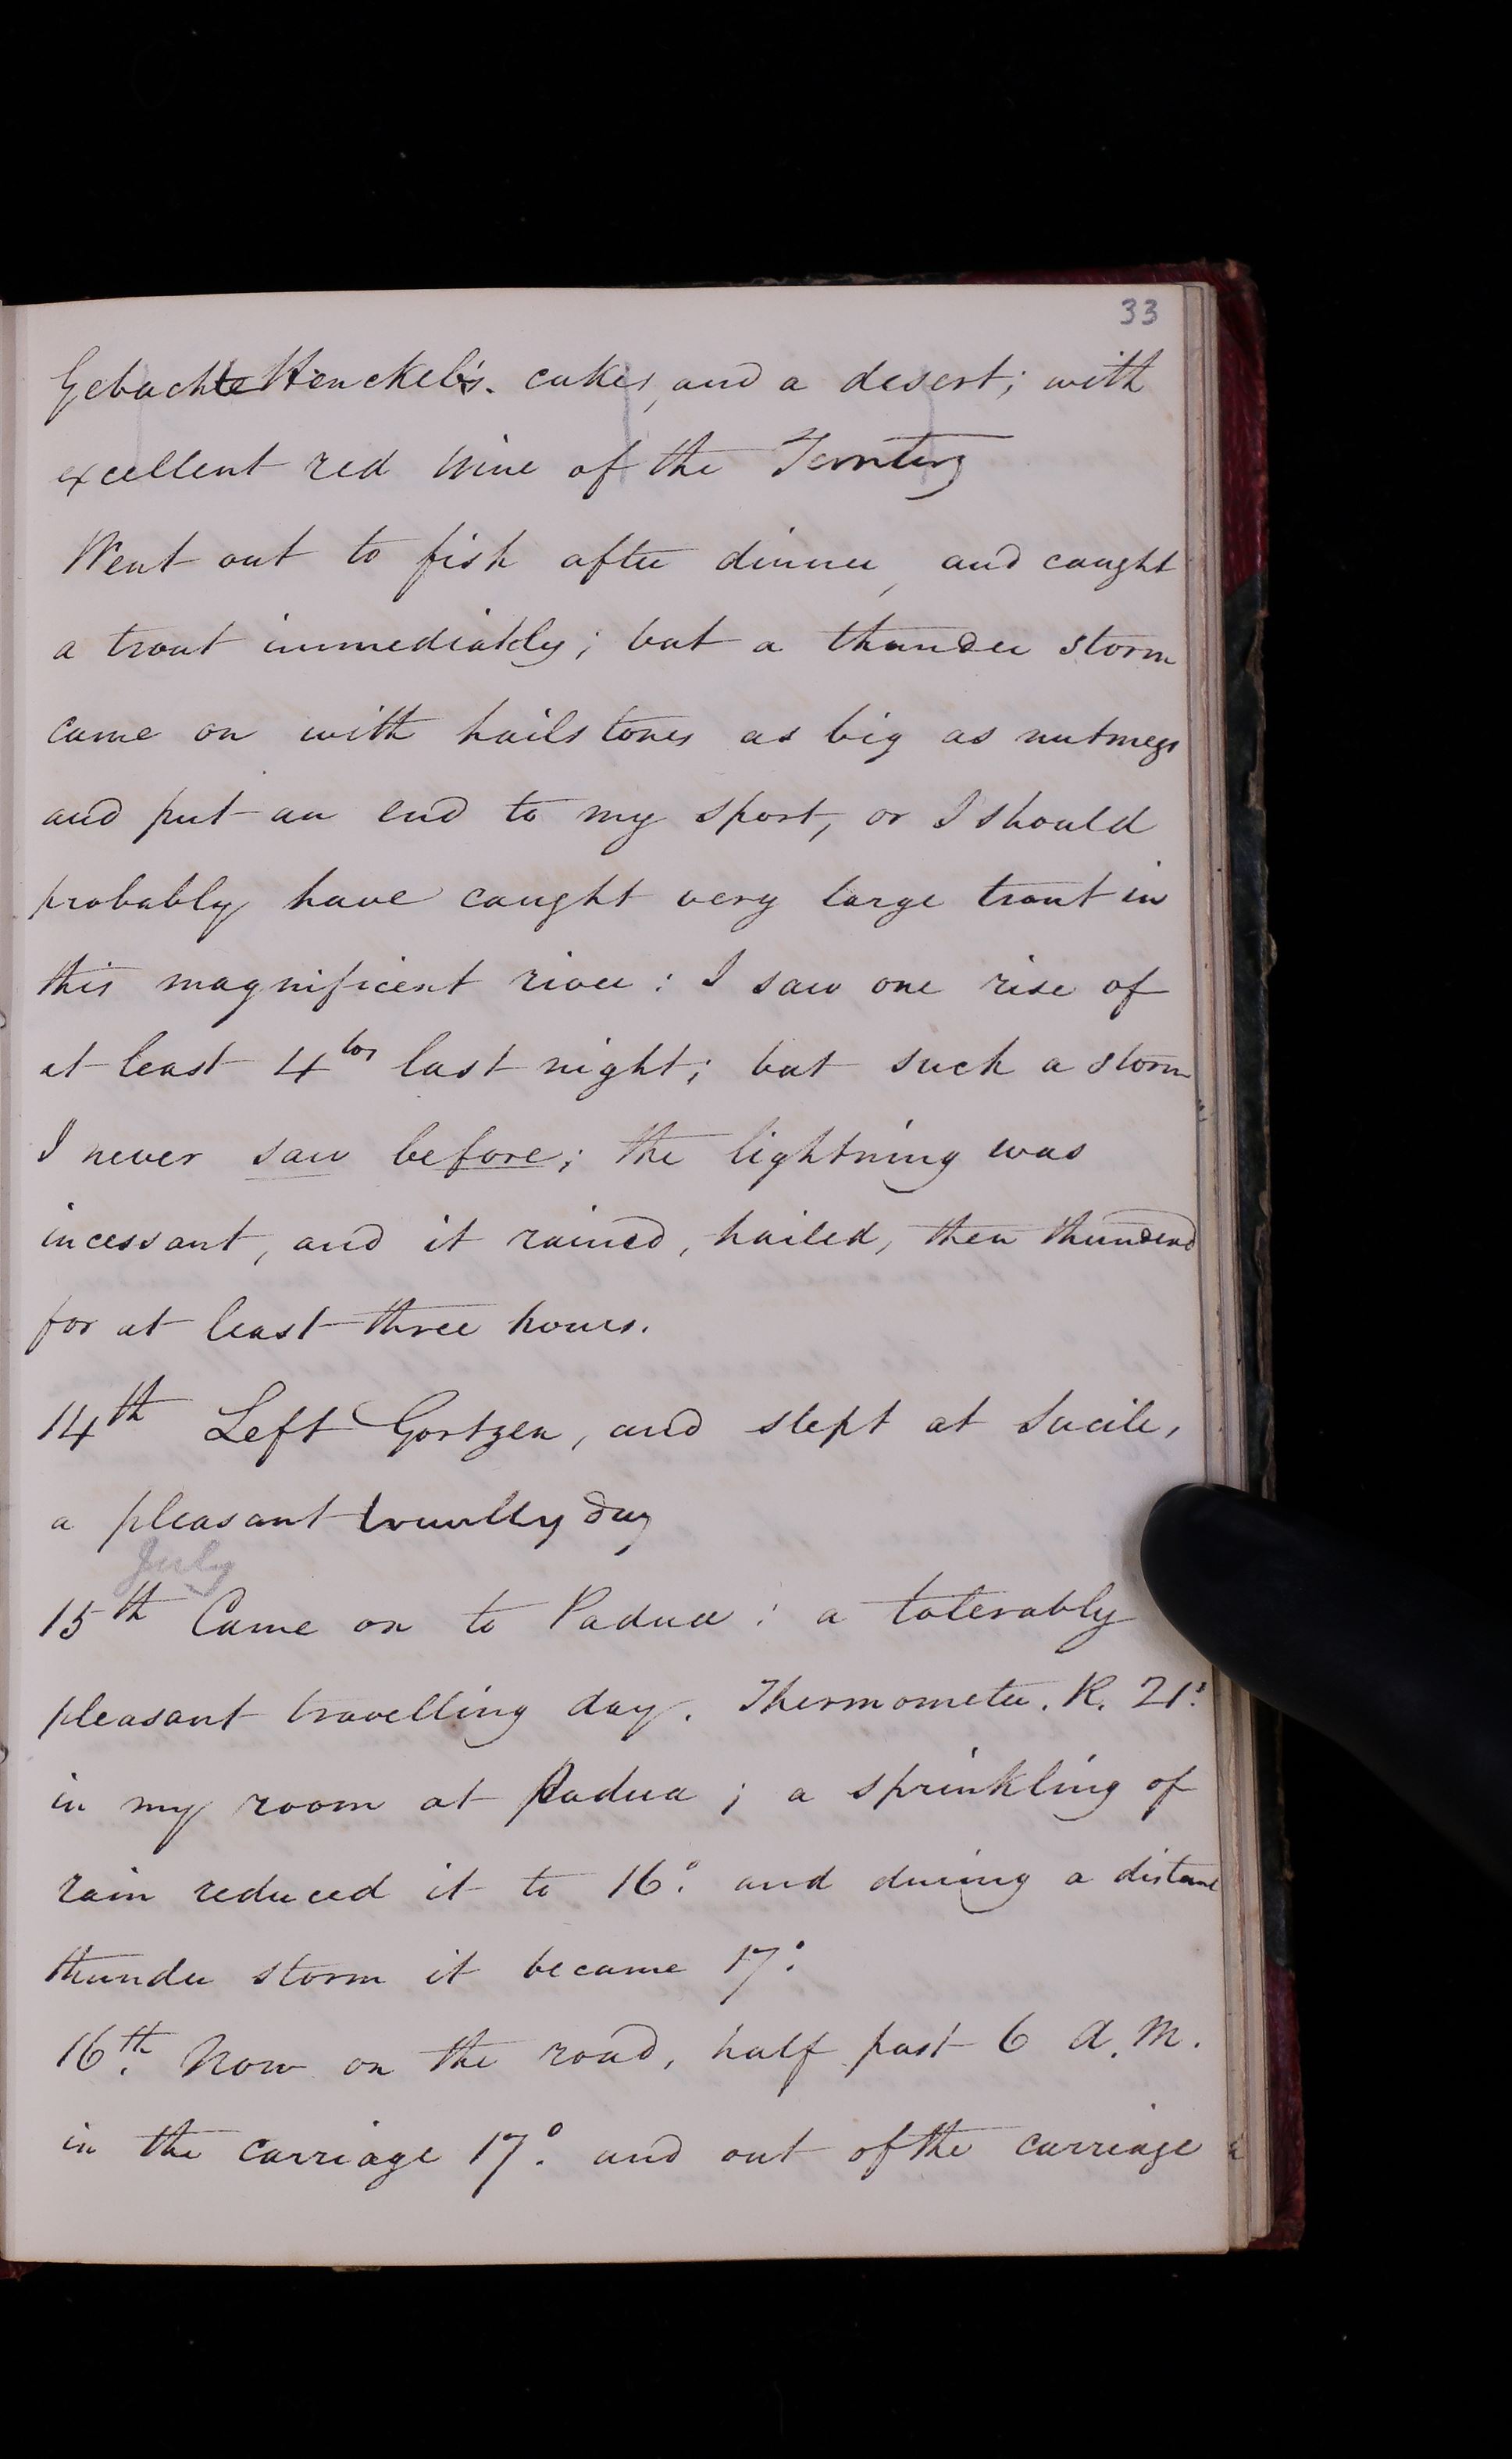 33
Gebachte Henckel's. cakes, and a desert; with
excellent red wine of the Territory
Went out to fish after dinner, and caught
a trout immediately; but a thunder storm
came on with hailstones as big as nutmegs
and put an end to my sport, or I should
probably have caught very large trout in
this magnificent river: I saw one rise of
at least 4 lbs last night; but such a storm
I never saw before; the lightning was
incessant, and it rained, hailed, then thundered
for at least three hours.
14th Left Gortzen, and slept at Sacile,
a pleasant day
July
15th Came on to Padua: a tolerably
pleasant travelling day. Thermometer. R. 21°.
in my room at Padua; a sprinkling of
rain reduced it to 16°. and during a distant
thunder storm it became 17°.
16th. Now on the road, half past 6 A.M.
in the carriage 17°. and out of the carriage